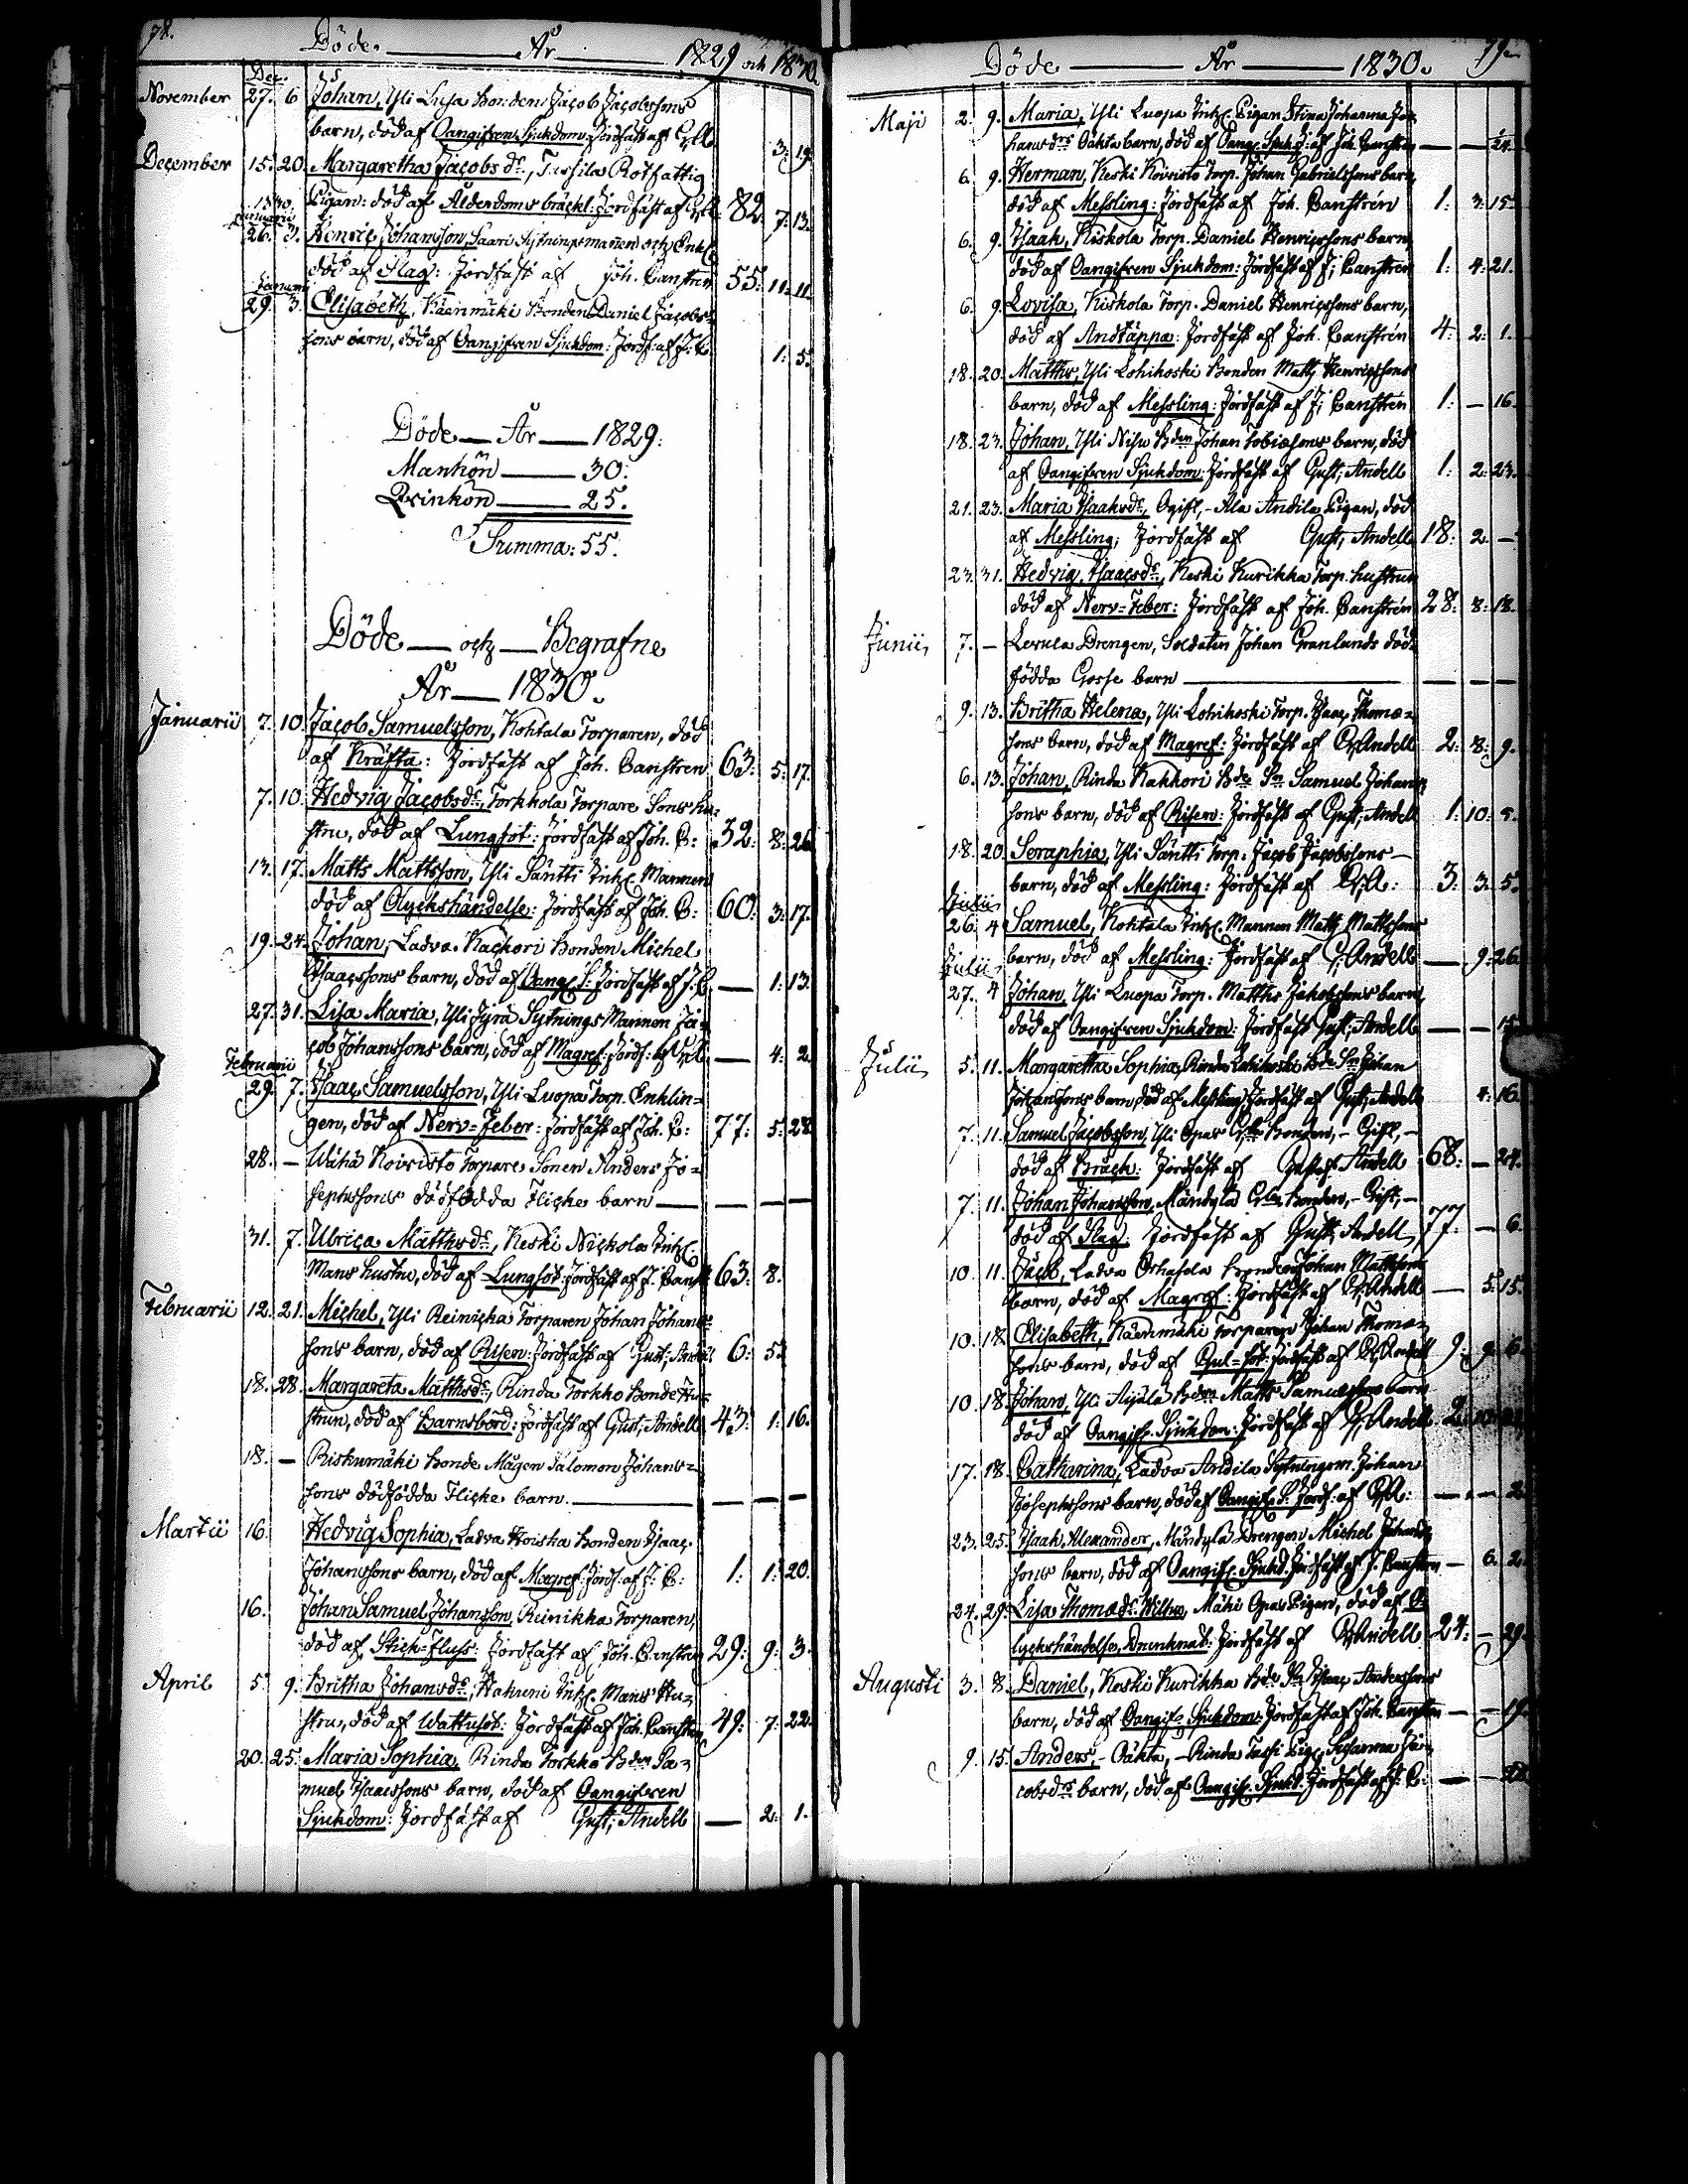 78.
Döde. År 1829 och 1830.
Dec.
November 27. 6 Johan, Yli Lusa Bonden Jacob Jacobssons
barn, död af Oangifven Sjukdom: Jordfäst af 3: 19.
December 15. 20. Margaretha Jacobs dr, Tussila Rotfattig
Pigan: död af Ålderdoms bräckl: Jordfäst af 82. 7: 13.
1830.
Januarii
26. 3. Henric Johansson, Saari Sytningsmannen och Enkl.
död af Slag: Jordfäst af Joh. Canstren 55: 11: 11.
Januarii
29. 3. Elisabeth, Käenmäki Bonden Daniel Jacobs-
sons barn, död af Oangifven Sjukdom: Jordf: af J: C: 1: 5:
Döde — År — 1829:
Mankön — 30:
Qvinkön — 25.
Summa: 55.
Döde — och — Begrafne
År — 1830.
Januarii 7. 10. Jacob Samuelsson, Kohtala Torparen, död
af Kräfta: Jordfäst af Joh. Canstren 63: 5: 17.
7. 10. Hedvig Jacobs dr, Torkkola Torpare Sons hu-
stru, död af Lungsot: Jordfäst af Joh. C: 32: 8: 26
13. 17. Matts Mattsson, Yli Säntti Inh. Mannen
död af Olyckshändelse: Jordfäst af Joh. C: 60: 3: 17.
19. 24. Johan, Ladva Kackori Bonden Michel
Isaacssons barn, död af Oang. S: Jordfäst af J: C. — 1: 13.
27. 31. Lisa Maria, Yli Jyrä Sytnings Mannen Ja-
cob Johanssons barn, död af Magref: Jordf: af — 4: 2.
Februarii
29. 7. Isaac Samuelsson, Yli Luopa Torp. Enklin-
gen, död af Nerv-Feber: Jordfäst af Joh. C: 77: 5: 28
28. — Wähä Koivisto Torpare Sonen Anders Jo-
sephssons dödfödda Flicke barn — — — —
31. 7. Ulrica Matths dr, Keski Nickola Inh.
Mans hustru, död af Lungsot: Jordfäst af J. Canst 63: 8.
Februarii 12. 21. Michel, Yli Reinicka Torparen Johan Johans-
sons barn, död af Risen: Jordfäst af Gust; Andell 6: 5:
18. 28. Margareta Matths dr, Rinda Torkko Bonde Hu-
strun, död af Barnsbörd: Jordfäst af Gust; Andell 43: 1: 16.
18. — Riskumäki Bonde Mågen Salomon Johans-
sons dödfödda Flicke barn. — — — —
Martii 16. Hedvig Sophia, Ladva Hoiska Bonden Isaac
Johanssons barn, död af Magref: Jordf: af J: C: 1: 1: 20.
16. Johan Samuel Johansson, Reinikka Torparen,
död af Stick-Fluss: Jordfäst af Joh. Canstren 29: 9: 3.
April 5. 9. Britha Johans dr, Hahreni Inh. Mans Hu-
stru, död af Wattusot: Jordfäst af Joh. Canstren 49: 7: 22.
20. 25. Maria Sophia, Rinda Torkko Bden Sa-
muel Isaacssons barn, död af Oangifven
Sjukdom: Jordfäst af Gust; Andell — 2: 1.
79.
Döde År 1830.
Maji 2. 9. Maria, Yli Luopa Inh. Pigan Stina Johanna Jo-
hansdrs Oäkta barn, död af Oang. Sjuk: J: af Joh. Canstren — — 24.
6. 9. Herman, Keski Koivisto Torp. Johan Gabrielssons barn,
död af Messling: Jordfäst af Joh. Canstrén 1: 3: 15.
6. 9. Isaak, Kiskola Torp. Daniel Henricssons barn,
död af Oangifven Sjukdom: Jordfäst af J; Canstren 1: 4: 21.
6. 9. Lovisa, Kiskola Torp. Daniel Henricssons barn,
död af Andtäppa: Jordfäst af Joh. Canstrén 4: 2: 1.
18. 20. Matths, Yli Lohikoski Bonden Matts Henricssons
barn, död af Messling: Jordfäst af J; Canstrén 1: — 16.
18. 23. Johan, Yli Nisu Bden Johan Tobiæsons barn, död
af Oangifven Sjukdom: Jordfäst af Gust; Andell 1: 2: 23.
21. 23. Maria Isaaks dr, Ogift,- Ala Andila Pigan, död
af Messling; Jordfäst af Gust; Andell 18: 2. —
23. 31. Hedvig, Isaacs dr, Keski Kurikka Torp. hustrun
död af Nerv-Feber: Jordfäst af Joh. Canstrén 28: 8: 18.
Junii 7. — Levula Drengen, Soldaten Johan Granlunds död-
födda Gosse barn — — — —
9. 13. Britha Helena, Yli Lohikoski Torp. Isaac Thomæ-
sons barn, död af Magref: Jordfäst af G; Andell 2: 8: 9.
6. 13. Johan, Rinda Kakkori Bde Sn Samuel Johans-
sons barn, död af Risen: Jordfäst af Gust; Andell 1: 10: 5.
18. 20. Seraphia, Yli Säntti Torp: Jacob Jacobssons
barn, död af Messling: Jordfäst af G; A: 3: 3: 5.
Julii
26. 4 Samuel, Kohtala Inh. Mannen Matts Mattssons
barn, död af Messling: Jordfäst af G; Andell — 9: 26.
Julii
27. 4 Johan, Yli Luopa Torp. Matths Jakobssons barn,
död af Oangifven Sjukdom: Jordfäst Gust; Andell — — 15.
Julii 5. 11. Margaretha Sophia, Rinda Lohikoski Bde Sn Johan
Johanssons barn, död af Messling: Jordfäst af Gust; Andell 4: 16.
7. 11. Samuel Jacobsson, Yli Opas Bonden, - Gift, -
död af Bråck: Jordfäst af Gustaf Andell 68: — 24.
7. 11. Johan Johansson, Mändylä Bonden, - Gift, -
död af Slag: Jordfäst af Gust; Andell 77: — 6.
10. 11. Jacob, Ladva Orhasela Bonden Johan Mattssons
barn, död af Magref: Jordfäst af G; Andell — 5: 15.
10. 18. Elisabeth, Käenmäki Torparen Johan Thomæ-
sons barn, död af Gul-sot: Jordfäst af G; Andell 9: 9: 6.
10. 18. Johan, Yli Bden Matts Samuelssons barn
död af Oangif. Sjukdom: Jordfäst af G; Andell 2: 10:
17. 18. Catharina, Ladva Andila Sytningsm. Johan
Josephssons barn, död af Oangif. S: Jordf: af G; A: — — 2.
23. 25. Isaak Alexander, Mändylä Drengen Michel Johans-
sons barn, död af Oangif. Sjukd. Jordfäst af J. Canstren — 6. 2.
24. 29. Lisa Thomæ dr Wilhu, Mäki Opas Pigan, död af O-
lyckshändelse, Drunknad: Jordfäst af G; Andell 24: — 29.
Augusti 3. 8. Daniel, Keski Kurikka Bde Sn Isaac Anderssons
barn, död af Oangif. Sjukdom: Jordfäst af Joh. Canstren — — 19.
9. 15. Anders,- Oäkta,- Rinda Tassi Pig. Susanna Ja-
cobsdrs barn, död af Oangif. Sjukd. Jordfäst af J: C: — — 28.